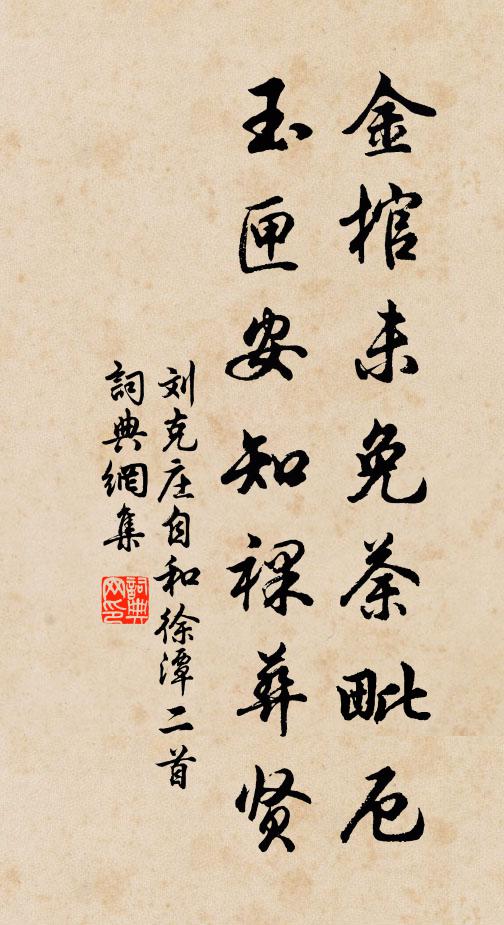 金棺未免荼毗厄
玉匣安知裸葬贤
刘克庄自和徐潭二首
詞典網集
詞典网印